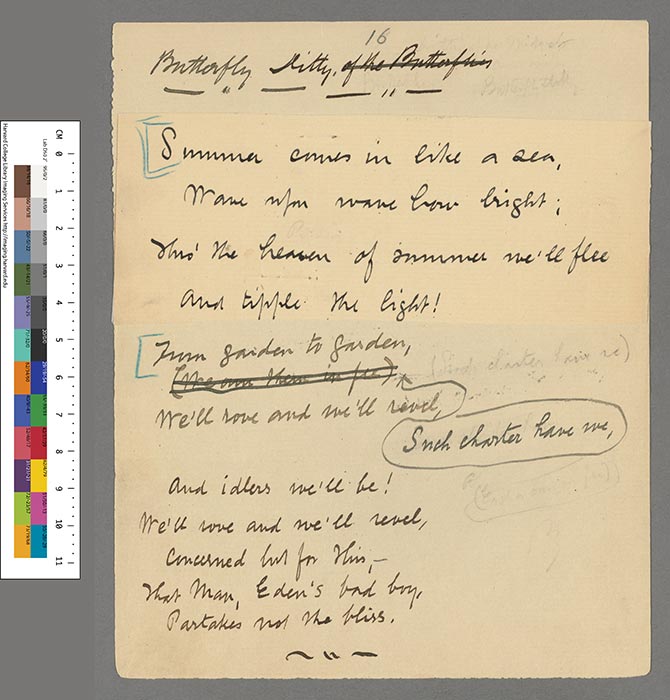 16
Butterfly Ditty, of the Butterflies
Summer comes in like a sea,
Wave upon wave how bright;
Thro' the heaven of summer we'll flee
And tipple the light!
From garden to garden,
(We own them in fee)
(Such charter have we)
We'll rove and we'll revel,
Such charter have we,
And idlers we'll be!
We'll rove and we'll revel,
Concerned but for this,—
That Man, Eden's bad boy,
Partakes not the bliss.
CM 0 1 2 3 4 5 6 7 8 9 10 11
Harvard College Library Imaging Services http://imaging.harvard.edu